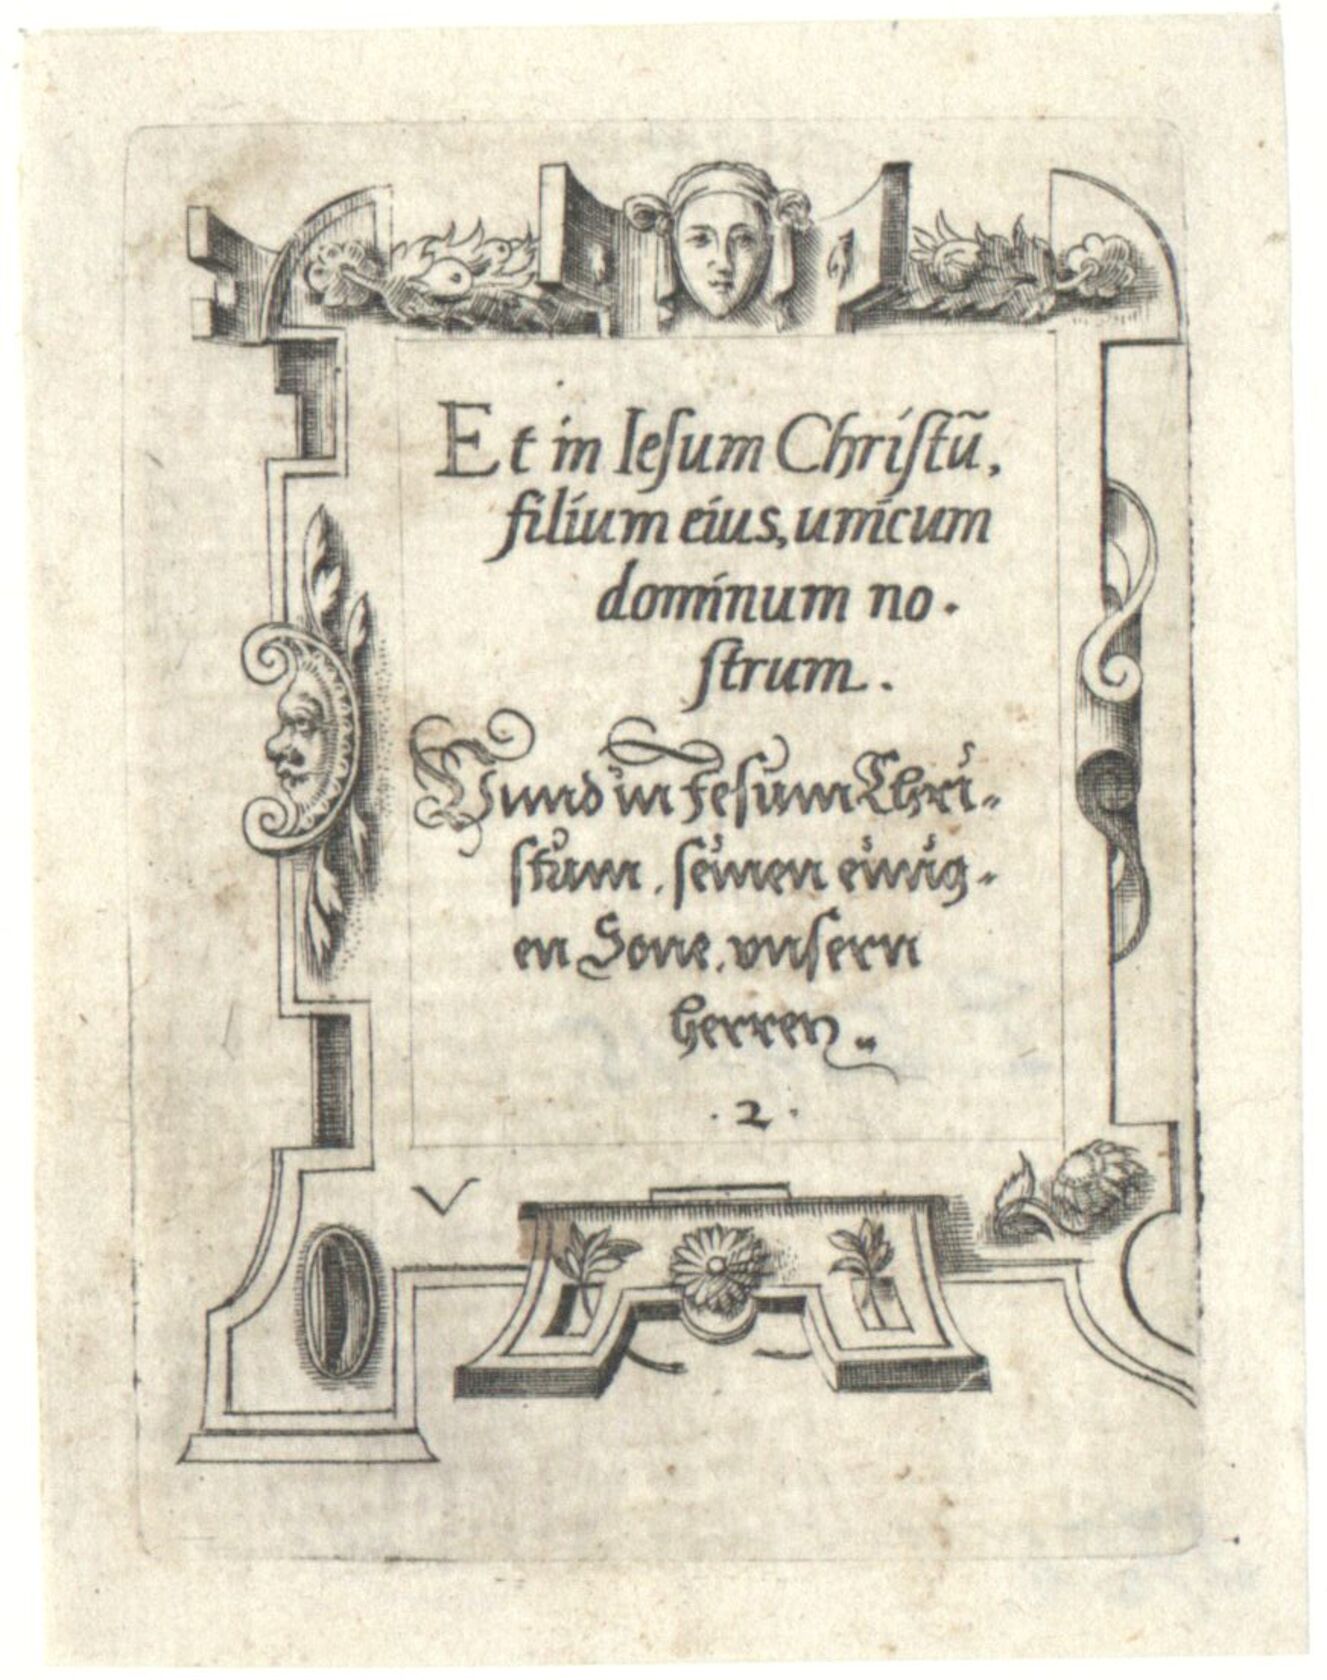 Et in Ieſum Chriſtũ,
filium eius, unicum
dominum no.
ſtrum.
Vnnd in Jeſum Chri-
ſtum, ſeinen einig-
en Sone, vnſern
herren.
.2.